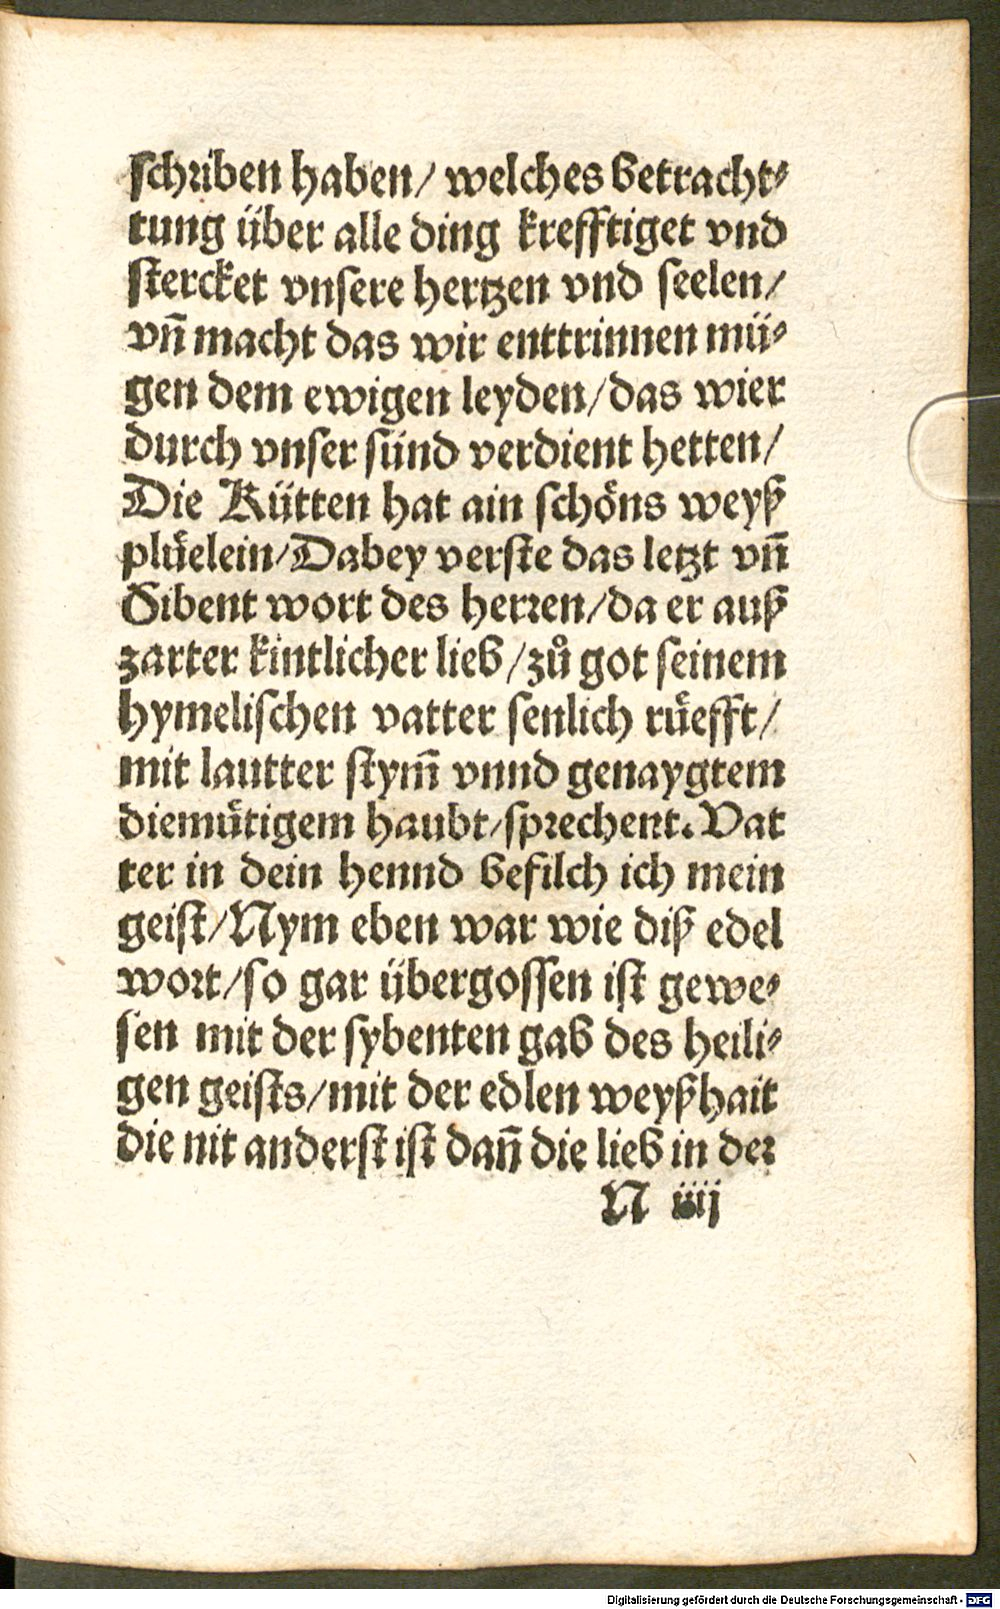 schriben haben/ welches betracht⸗
tung über alle ding krefftiget vnd
stercket vnsere hertzen vnd seelen/
vñ macht das wir enttrinnen mü⸗
gen dem ewigen leyden/das wier
durch vnser sünd verdient hetten/
Die Kütten hat ain schöns weyß
plüelein/Dabey verste das letzt vñ
Sibent wort des herren/da er auß
zarter kintlicher lieb/zů got seinem
hymelischen vatter senlich rüefft/
mit lautter stym̃ vnnd genaygtem
diemütigem haubt/sprechent. Vat
ter in dein hennd befilch ich mein
geist/Nym eben war wie diß edel
wort/so gar übergossen ist gewe⸗
sen mit der sybenten gab des heili⸗
gen geists/mit der edlen weyßhait
die nit anderst ist dañ die lieb in der
N iiij
Digitalisierung gefördert durch die Deutsche Forschungsgemeinschaft - DFG